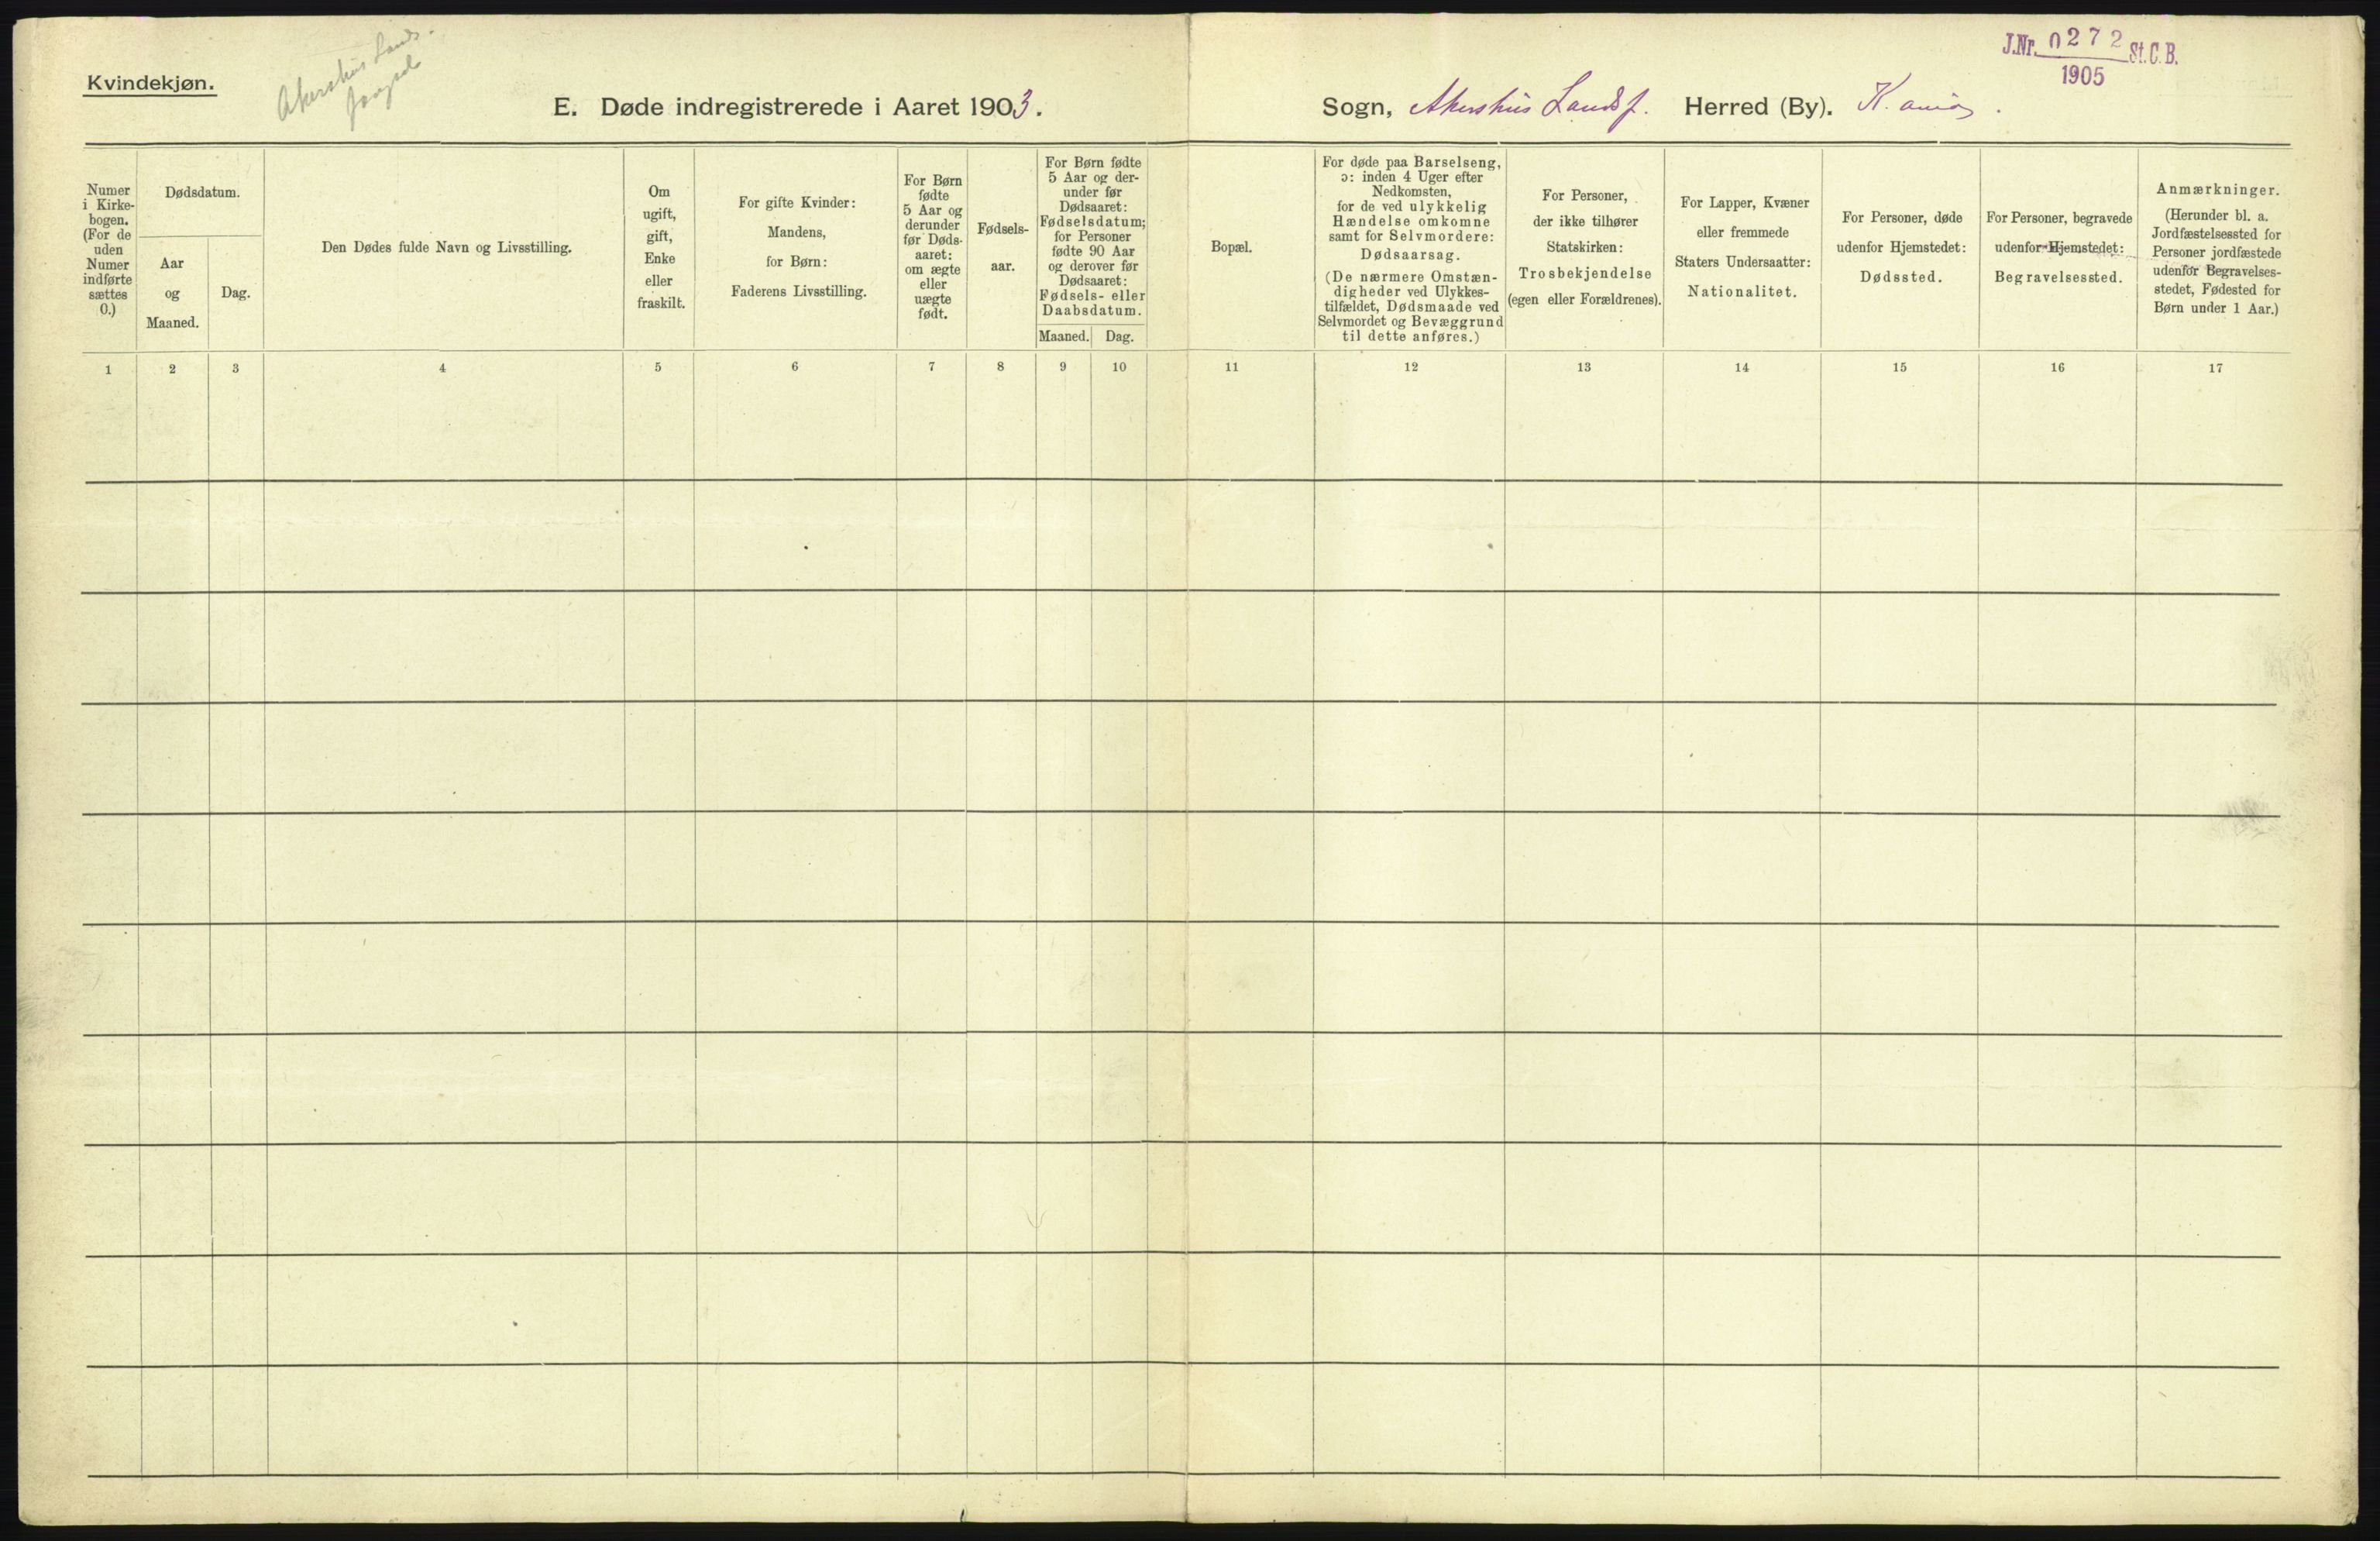 Kvindekjøn.
Akershus Lands-
E. Døde indregistrerede i Aaret 1903.
Sogn, Akershus Landsf. Herred (By). K.ania.
J.Nr. 0272 St.C.B.
1905
Numer
i Kirke-
bogen.
(For de
uden
Numer
indførte
sættes
0.)
Dødsdatum.
Aar
og
Maaned.
Dag.
Den Dødes fulde Navn og Livsstilling.
Om
ugift,
gift,
Enke
eller
fraskilt.
For gifte Kvinder:
Mandens,
for Børn:
Faderens Livsstilling.
For Børn
fødte
5 Aar og
derunder
før Døds-
aaret:
om ægte
eller
uægte
født.
Fødsels-
aar.
For Børn fødte
5 Aar og der-
under før
Dødsaaret:
Fødselsdatum;
for Personer
fødte 90 Aar
og derover før
Dødsaaret:
Fødsels- eller
Daabsdatum.
Maaned.
Dag.
Bopæl.
For døde paa Barselseng,
ɔ: inden 4 Uger efter
Nedkomsten,
for de ved ulykkelig
Hændelse omkomne
samt for Selvmordere:
Dødsaarsag.
(De nærmere Omstæn-
digheder ved Ulykkes-
tilfældet, Dødsmaade ved
Selvmordet og Bevæggrund
til dette anføres.)
For Personer,
der ikke tilhører
Statskirken:
Trosbekjendelse
(egen eller Forældrenes).
For Lapper, Kvæner
eller fremmede
Staters Undersaatter:
Nationalitet.
For Personer, døde
udenfor Hjemstedet:
Dødssted.
For Personer, begravede
udenfor Hjemstedet:
Begravelsessted.
Anmærkninger.
(Herunder bl. a.
Jordfæstelsessted for
Personer jordfæstede
udenfor Begravelses-
stedet, Fødested for
Børn under 1 Aar.)
1 2 3 4 5 6 7 8 9 10 11 12 13 14 15 16 17